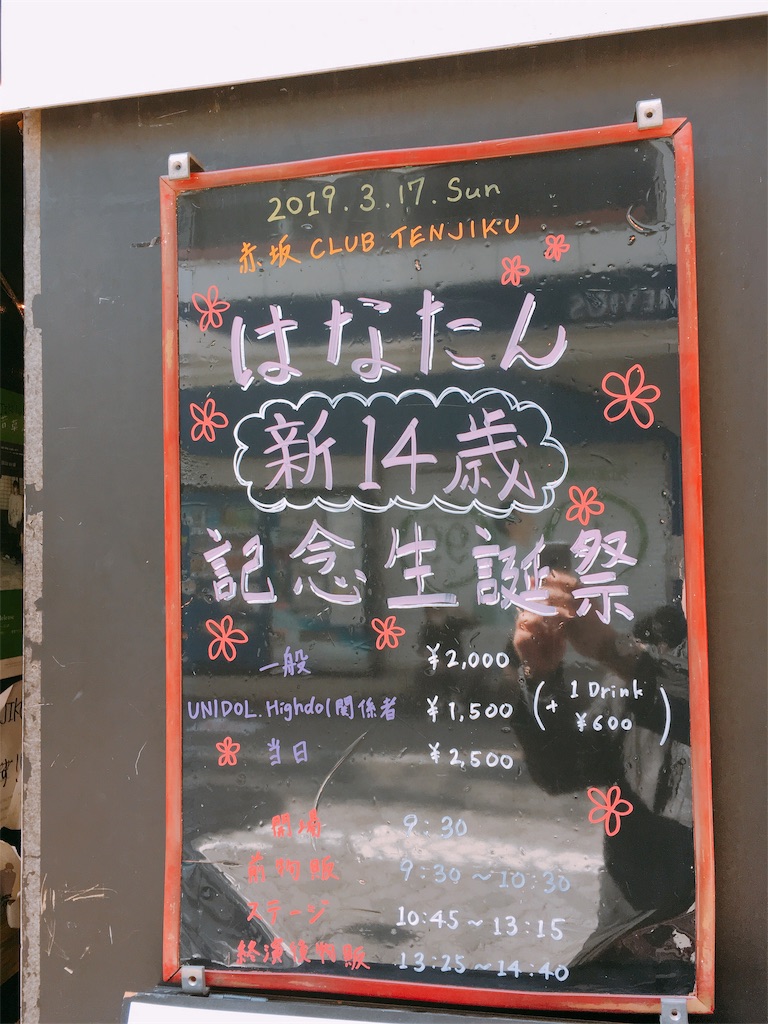 2019.3.17.Sun
赤坂 CLUB TENJIKU
はなたん
新14歳
記念生誕祭
一般 ¥2,000
UNIDOL.Highdol関係者 ¥1,500 (+ 1 Drink ¥600)
当日 ¥2,500
開場 9:30
前物販 9:30～10:30
ステージ 10:45～13:15
終演後物販 13:25～14:40